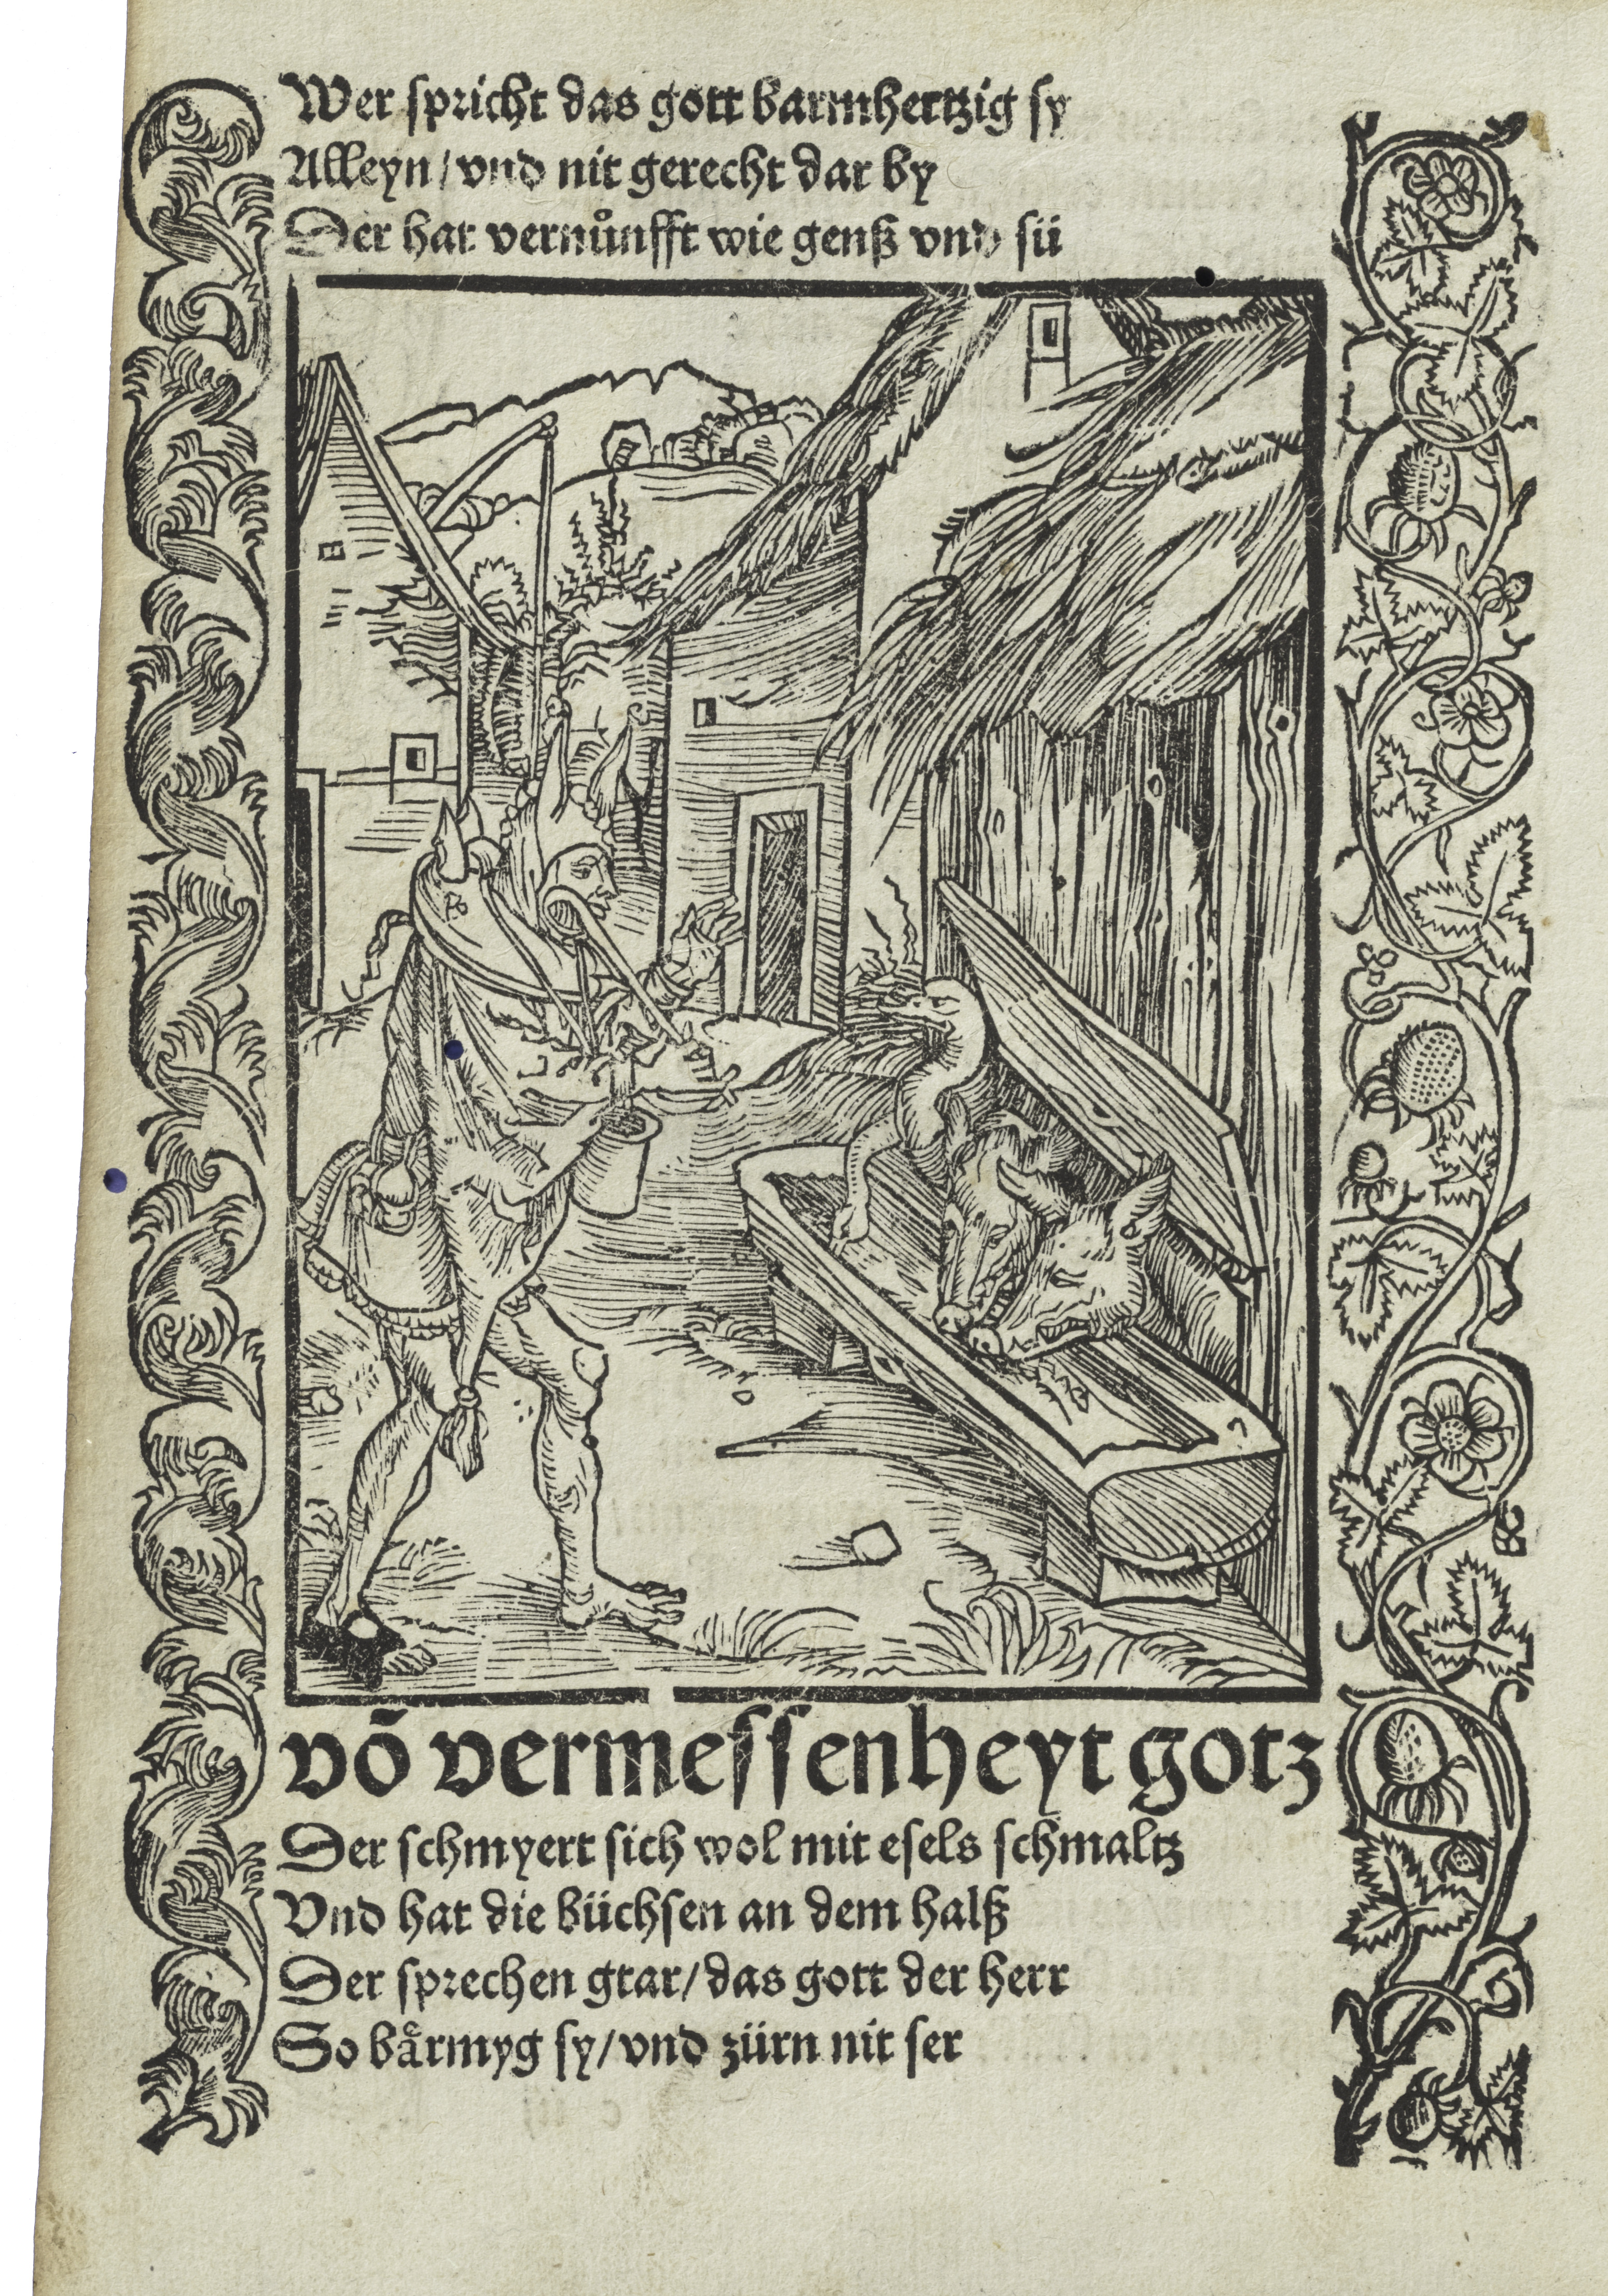 Wer spricht das gott barmhertzig sy
Alleyn / vnd nit gerecht dar by
Der hat vernůnfft wie genß vnd sü
võ vermessenheyt gotz
Der schmyert sich wol mit esels schmaltz
Vnd hat die büchsen an dem halß
Der sprechen gtar / das gott der herr
So bårmyg sy / vnd zürn nit ser